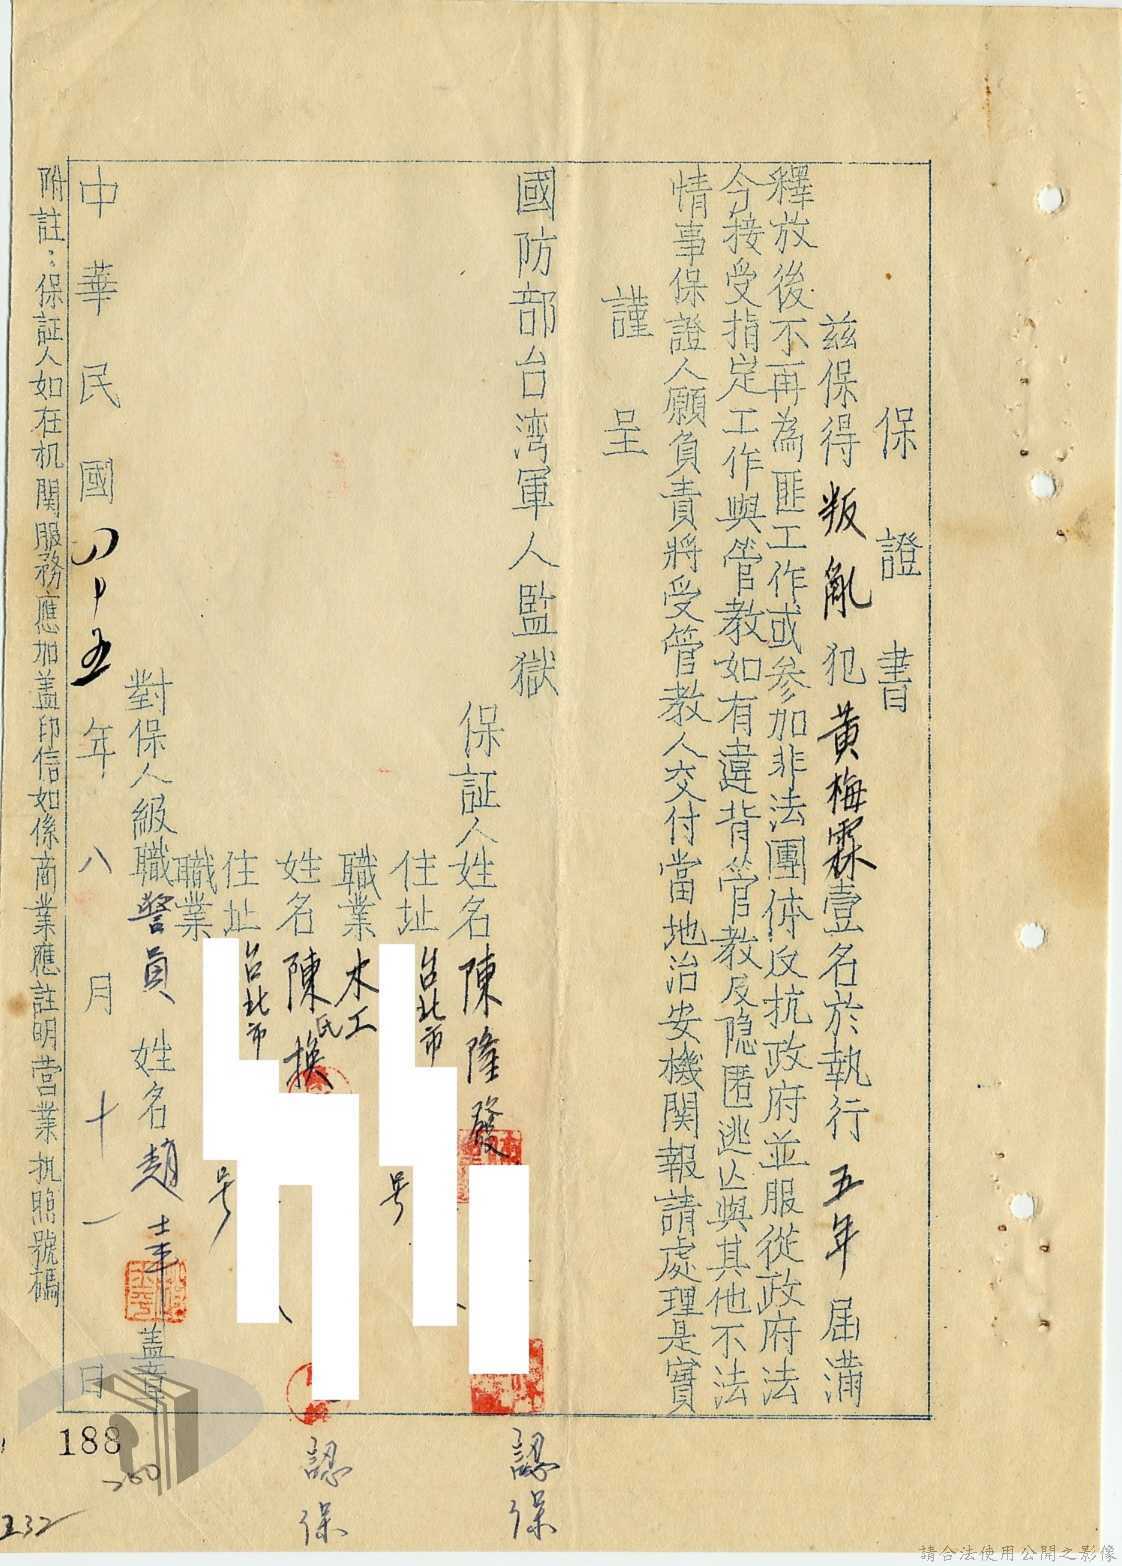 保證書
茲保得叛亂犯黃梅霖壹名於執行五年屆滿
釋放後不再為匪工作或參加非法團体反抗政府並服從政府法
今接受指定工作與管教如有違背管教及隐匿逃亡與其他不法
情事保證人願負責將受管教人交付當地治安機関報請處理是實
謹呈
國防部台湾軍人監獄
保証人姓名陳隆發
認保
住址台北市
号
職業木工
姓名陳氏換
認保
住址台北市
号
職業
對保人級職警員 姓名趙
蓋章
中華民國四十五年八月十一日
附註：保証人如在机関服務應加盖印信如係商業應註明营業执照號碼
188
260
232
請合法使用公開之影像